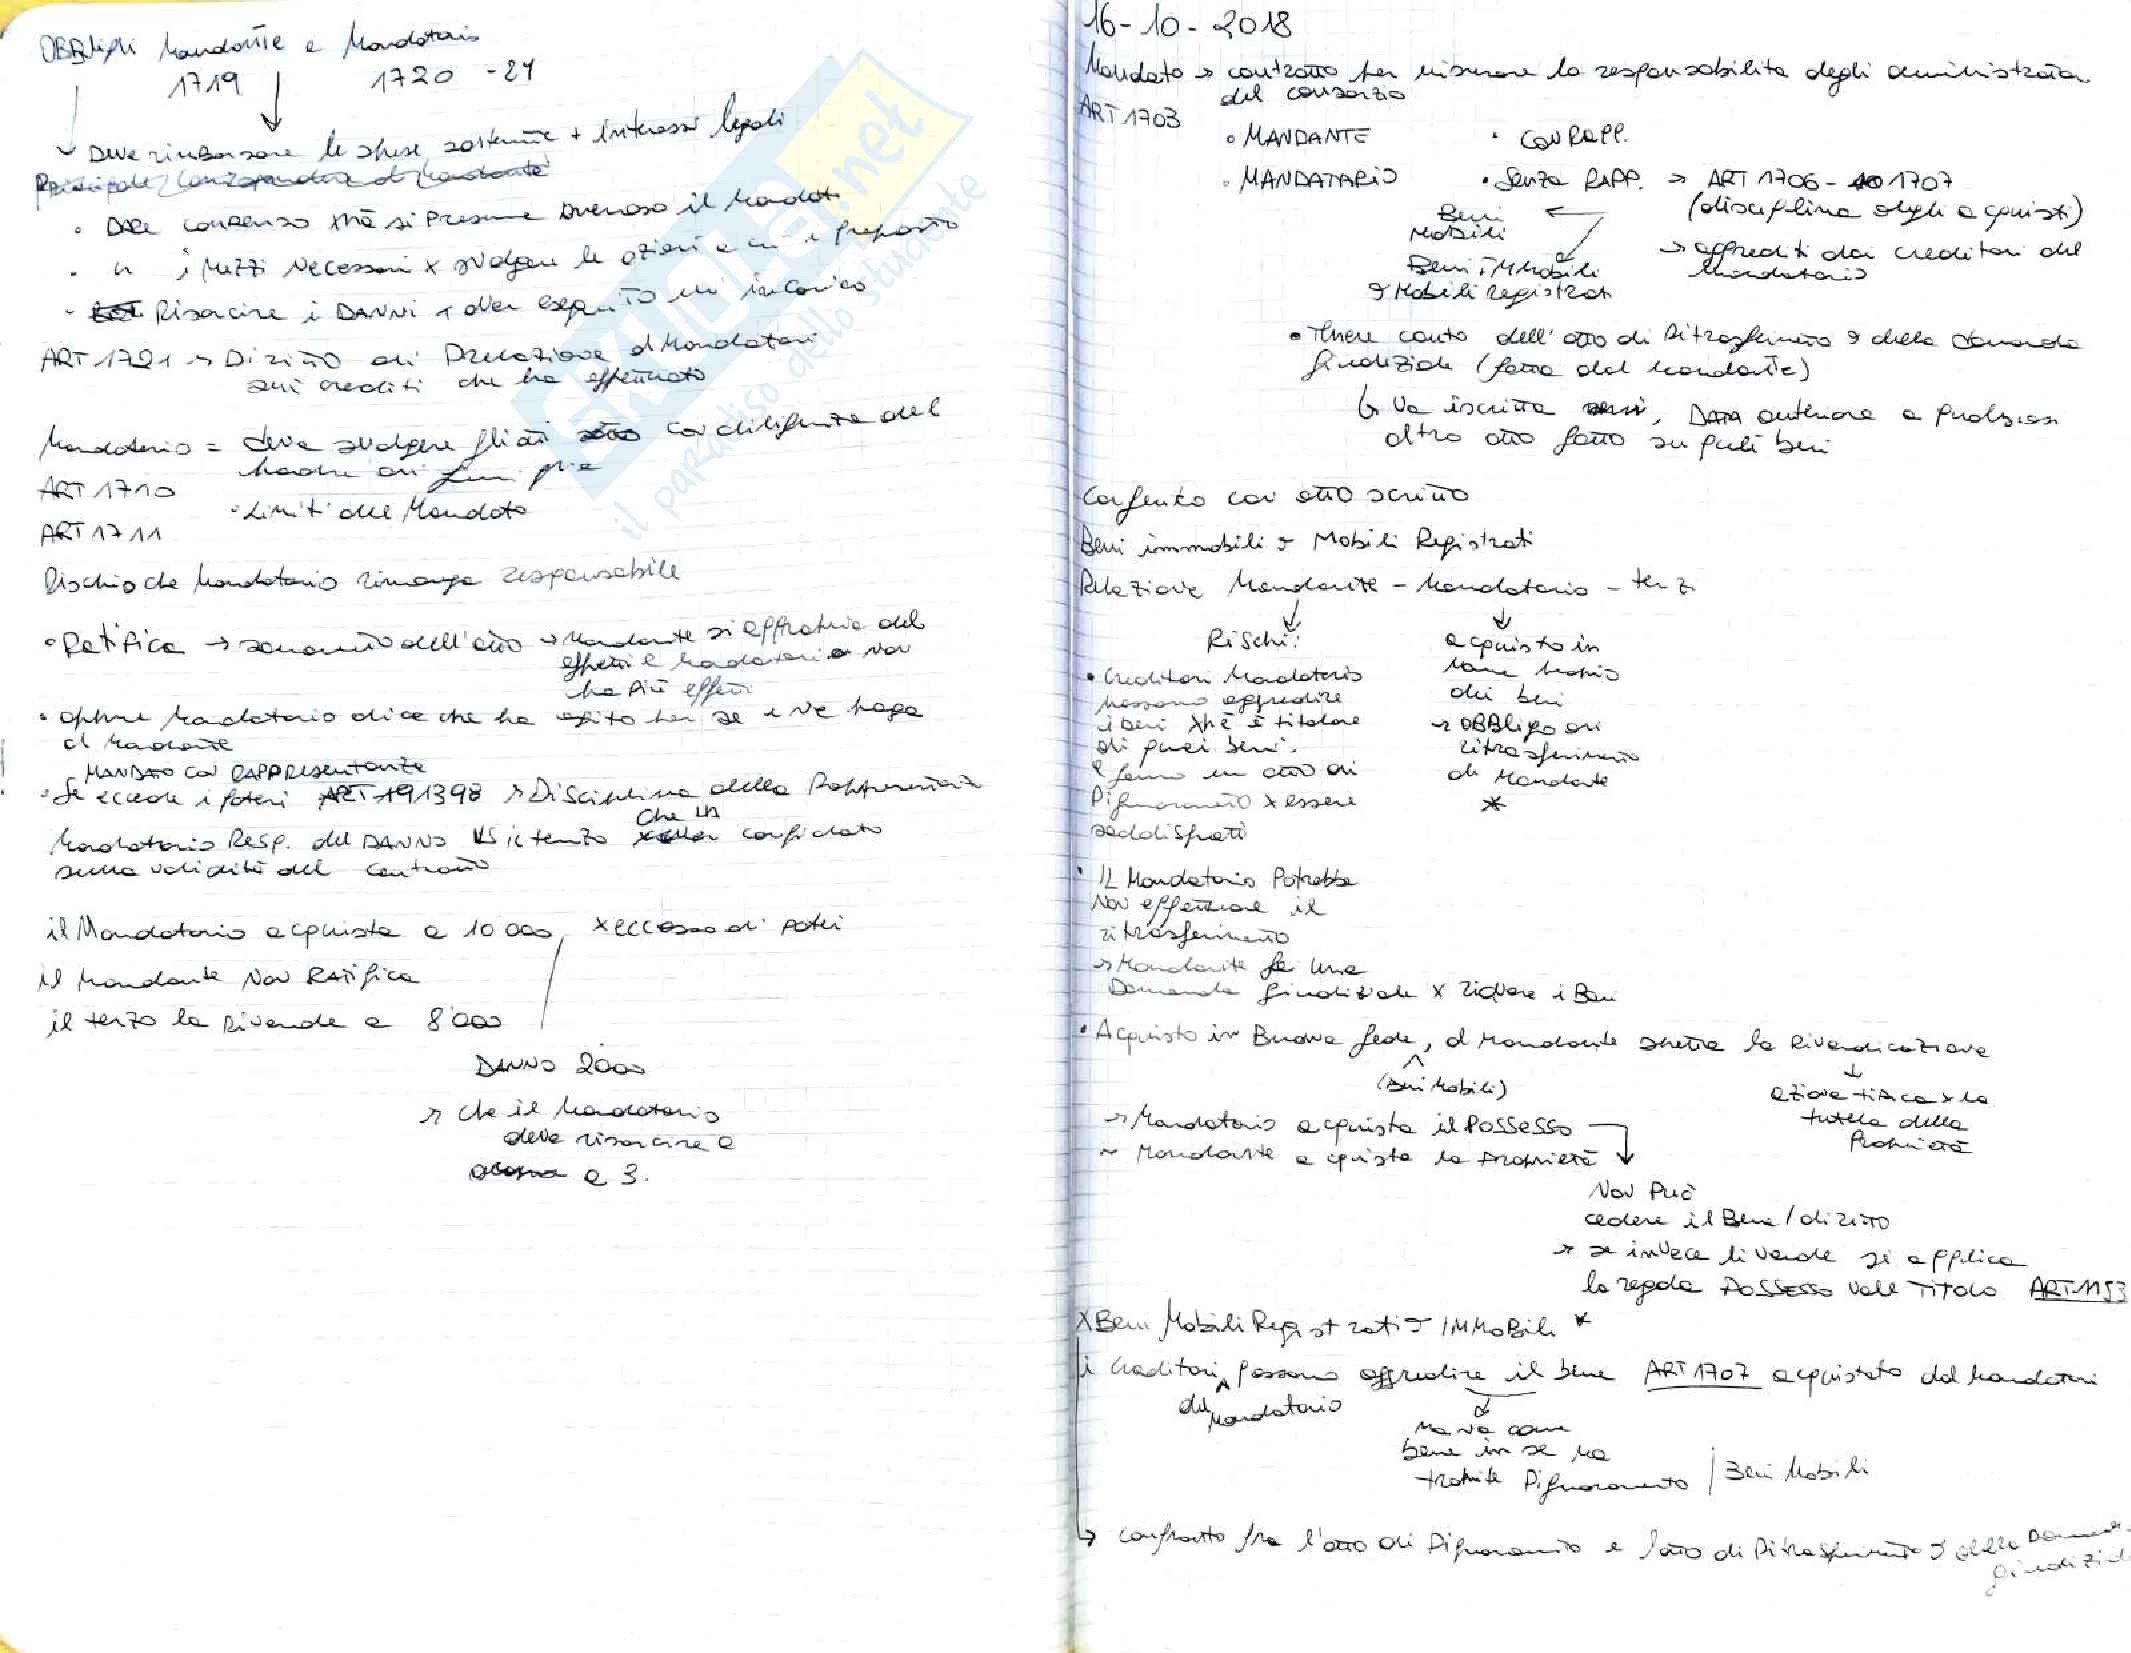 OBBlighi Mandante e Mandatario
1719 1720 -21
Deve rimborsare le spese sostenute + interessi legali
• Dare compenso xkè si presume oneroso il Mandato
• " i Mezzi Necessari x svolgere le azioni a cui è preposto
• Risarcire i DANNI x aver eseguito un incarico
ART 1721 → Diritto di Prelazione al Mandatario
sui crediti che ha effettuato
Mandatario = deve svolgere gli atti con diligenza del
ART 1710
• Limiti del Mandato
ART 1711
Rischio che Mandatario rimanga responsabile
• Ratifica → sanamento dell'atto → Mandante si appropria del
effetti e Mandatario non
ha più effetti
• oppure Mandatario dice che ha agito per se e ne paga
al Mandante
MANDATO con RAPPRESENTANZA
• Se eccede i poteri ART 1398 → Disciplina della Rappresentanza
che ha
Mandatario Resp. del DANNO VS il terzo confidato
sulla validità del contratto
il Mandatario acquista a 10 000 x eccesso di poteri
il Mandante Non RAtifica
il terzo la rivende a 8'000
DANNO 2000
→ che il Mandatario
deve risarcire a
a 3.
16-10-2018
Mandato → contratto per misurare la responsabilità degli amministratori
del consorzio
ART 1703
• MANDANTE • CON RAPP.
• MANDATARIO • Senza RAPP. → ART 1706 - 1707
(disciplina degli acquisti)
Beni
Mobili
→ aggrediti dai creditori del
Mandatario
Beni immobili
e Mobili registrati
• Tenere conto dell'atto di Ritrasferimento e della domanda
Giudiziale (fatta dal Mandante)
↳ Va iscritta, DATA anteriore a qualsiasi
altro atto fatto su quei beni
Conferito con atto scritto
Beni immobili e Mobili Registrati
Relazione Mandante - Mandatario - terzi
Rischi:
• Creditori Mandatario
possono aggredire
i beni xkè è titolare
di quei beni.
e fanno un atto di
Pignoramento x essere
soddisfatti
acquisto in
nome proprio
dei beni
→ OBBligo di
ritrasferimento
al Mandante
*
• IL Mandatario Potrebbe
Non effettuare il
ritrasferimento
→ Mandante fa una
Domanda giudiziale x riavere i Beni
• Acquisto in Buona fede, al Mandante spetta la Rivendicazione
(Beni Mobili)
azione tipica x la
tutela della
Proprietà
→ Mandatario acquista il POSSESSO
~ Mandante acquista la Proprietà
Non Può
cedere il Bene / diritto
→ se invece li vende si applica
la regola POSSESSO Vale TITOLO ART 1153
X Beni Mobili Registrati e IMMoBili *
i creditori possono aggredire il bene ART 1707 acquistato dal Mandatari
del Mandatario
Ma va come
bene in se ma
tramite Pignoramento / Beni Mobili
→ confronto fra l'atto di Pignoramento e l'atto di Ritrasferimento e della Domanda
Giudiziale
SKUOLA.net
il paradiso dello studente